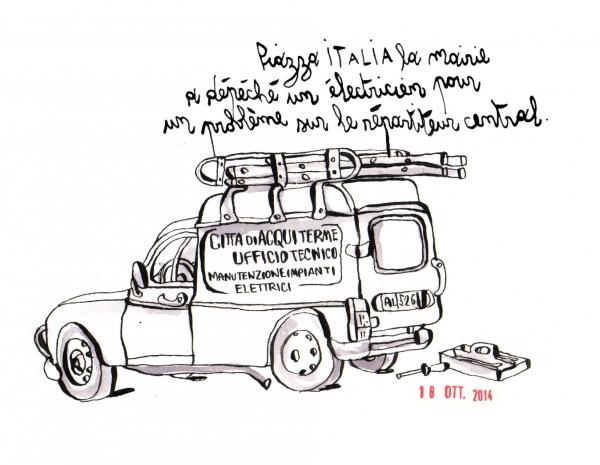 Piazza ITALIA la mairie
a dépéché un électricien pour
un problème sur le répartiteur central.
CITTA DI ACQUI TERME
UFFICIO TECNICO
MANUTENZIONE IMPIANTI
ELETTRICI
AL 526
18 OTT. 2014